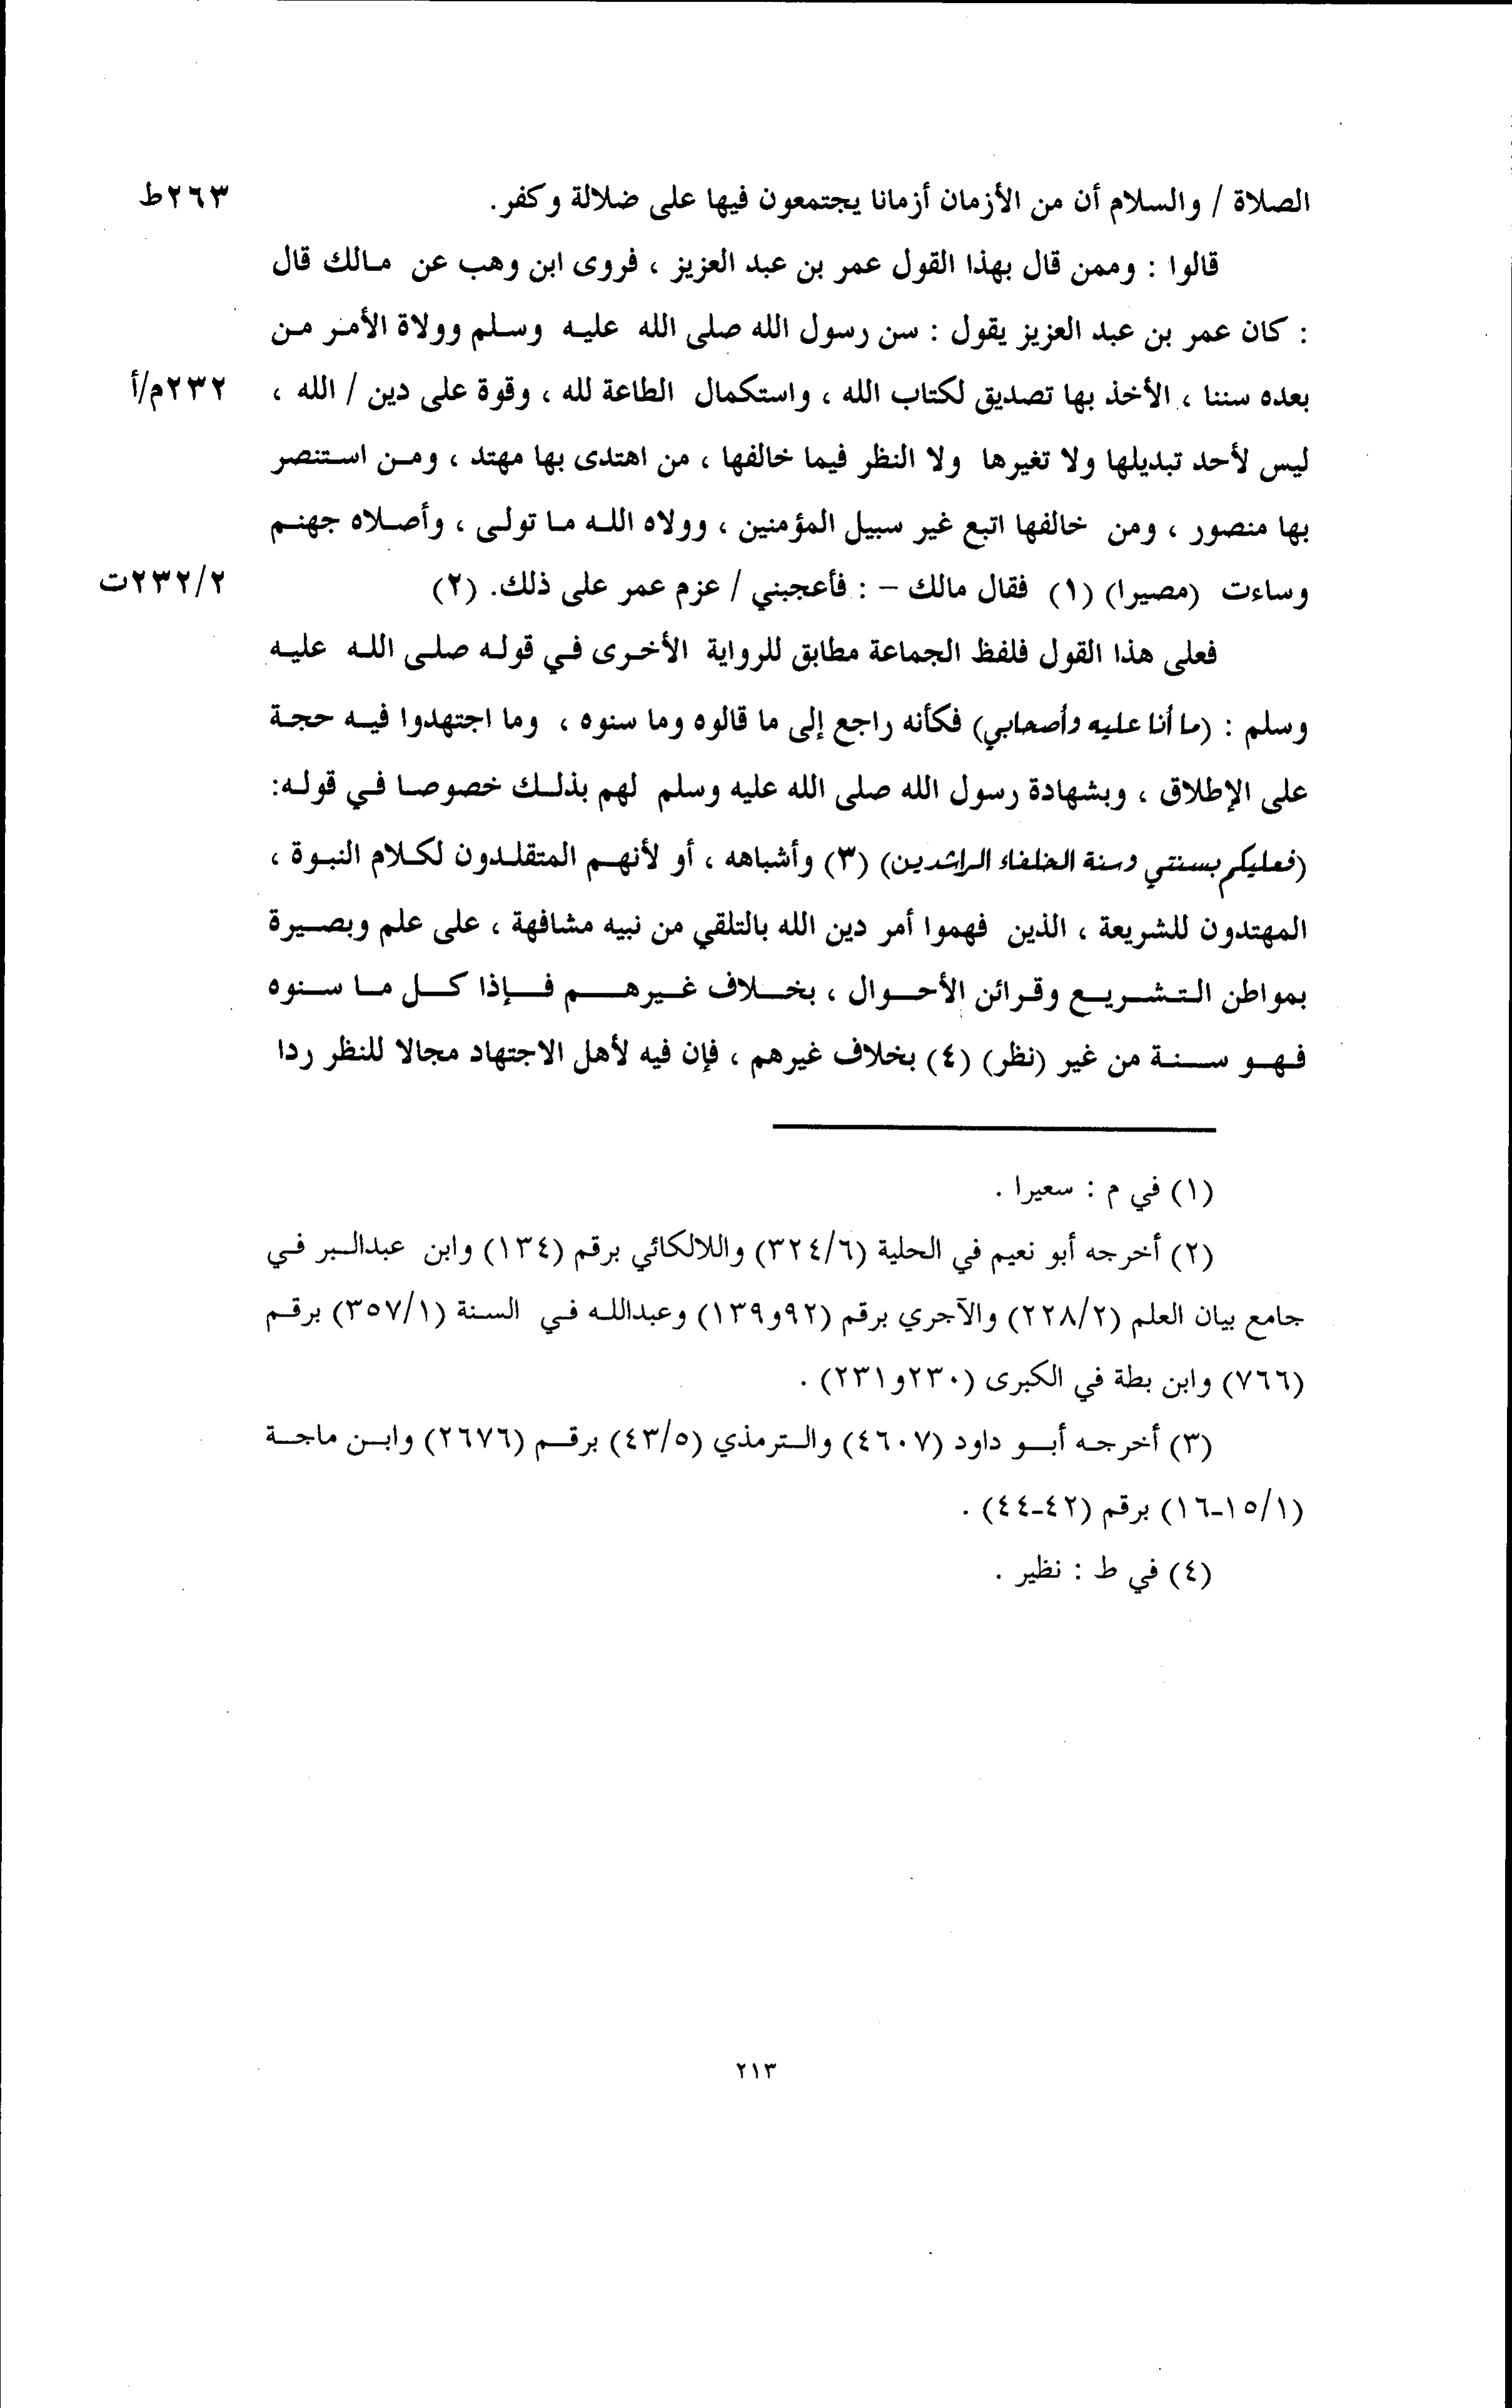 الصلاة / والسلام أن من الأزمان أزمانا يجتمعون فيها على ضلالة وكفر. ٢٦٣ط
قالوا : وممن قال بهذا القول عمر بن عبد العزيز ، فروى ابن وهب عن مالك قال
: كان عمر بن عبد العزيز يقول : سن رسول الله صلى الله عليه وسلم وولاة الأمر من
بعده سننا ، الأخذ بها تصديق لكتاب الله ، واستكمال الطاعة لله ، وقوة على دين / الله ، ٢٣٢م/أ
ليس لأحد تبديلها ولا تغيرها ولا النظر فيما خالفها ، من اهتدى بها مهتد ، ومن استنصر
بها منصور ، ومن خالفها اتبع غير سبيل المؤمنين ، وولاه الله ما تولى ، وأصلاه جهنم
وساءت (مصيرا) (١) فقال مالك – : فأعجبني / عزم عمر على ذلك. (٢) ٢٣٢/٢ت
فعلى هذا القول فلفظ الجماعة مطابق للرواية الأخرى في قوله صلى الله عليه
وسلم : (ما أنا عليه وأصحابي) فكأنه راجع إلى ما قالوه وما سنوه ، وما اجتهدوا فيه حجة
على الإطلاق ، وبشهادة رسول الله صلى الله عليه وسلم لهم بذلك خصوصا في قوله:
(فعليكم بسنتي وسنة الخلفاء الراشدين) (٣) وأشباهه ، أو لأنهم المتقلدون لكلام النبوة ،
المهتدون للشريعة ، الذين فهموا أمر دين الله بالتلقي من نبيه مشافهة ، على علم وبصيرة
بمواطن التشريع وقرائن الأحوال ، بخلاف غيرهم فإذا كل ما سنوه
فهو سنة من غير (نظر) (٤) بخلاف غيرهم ، فإن فيه لأهل الاجتهاد مجالا للنظر ردا
(١) في م : سعيرا .
(٢) أخرجه أبو نعيم في الحلية (٣٢٤/٦) واللالكائي برقم (١٣٤) وابن عبدالبر في
جامع بيان العلم (٢٢٨/٢) والآجري برقم (٩٢و١٣٩) وعبدالله في السنة (٣٥٧/١) برقم
(٧٦٦) وابن بطة في الكبرى (٢٣٠و٢٣١) .
(٣) أخرجه أبو داود (٤٦٠٧) والترمذي (٤٣/٥) برقم (٢٦٧٦) وابن ماجة
(١٥/١-١٦) برقم (٤٢-٤٤) .
(٤) في ط : نظير .
٢١٣